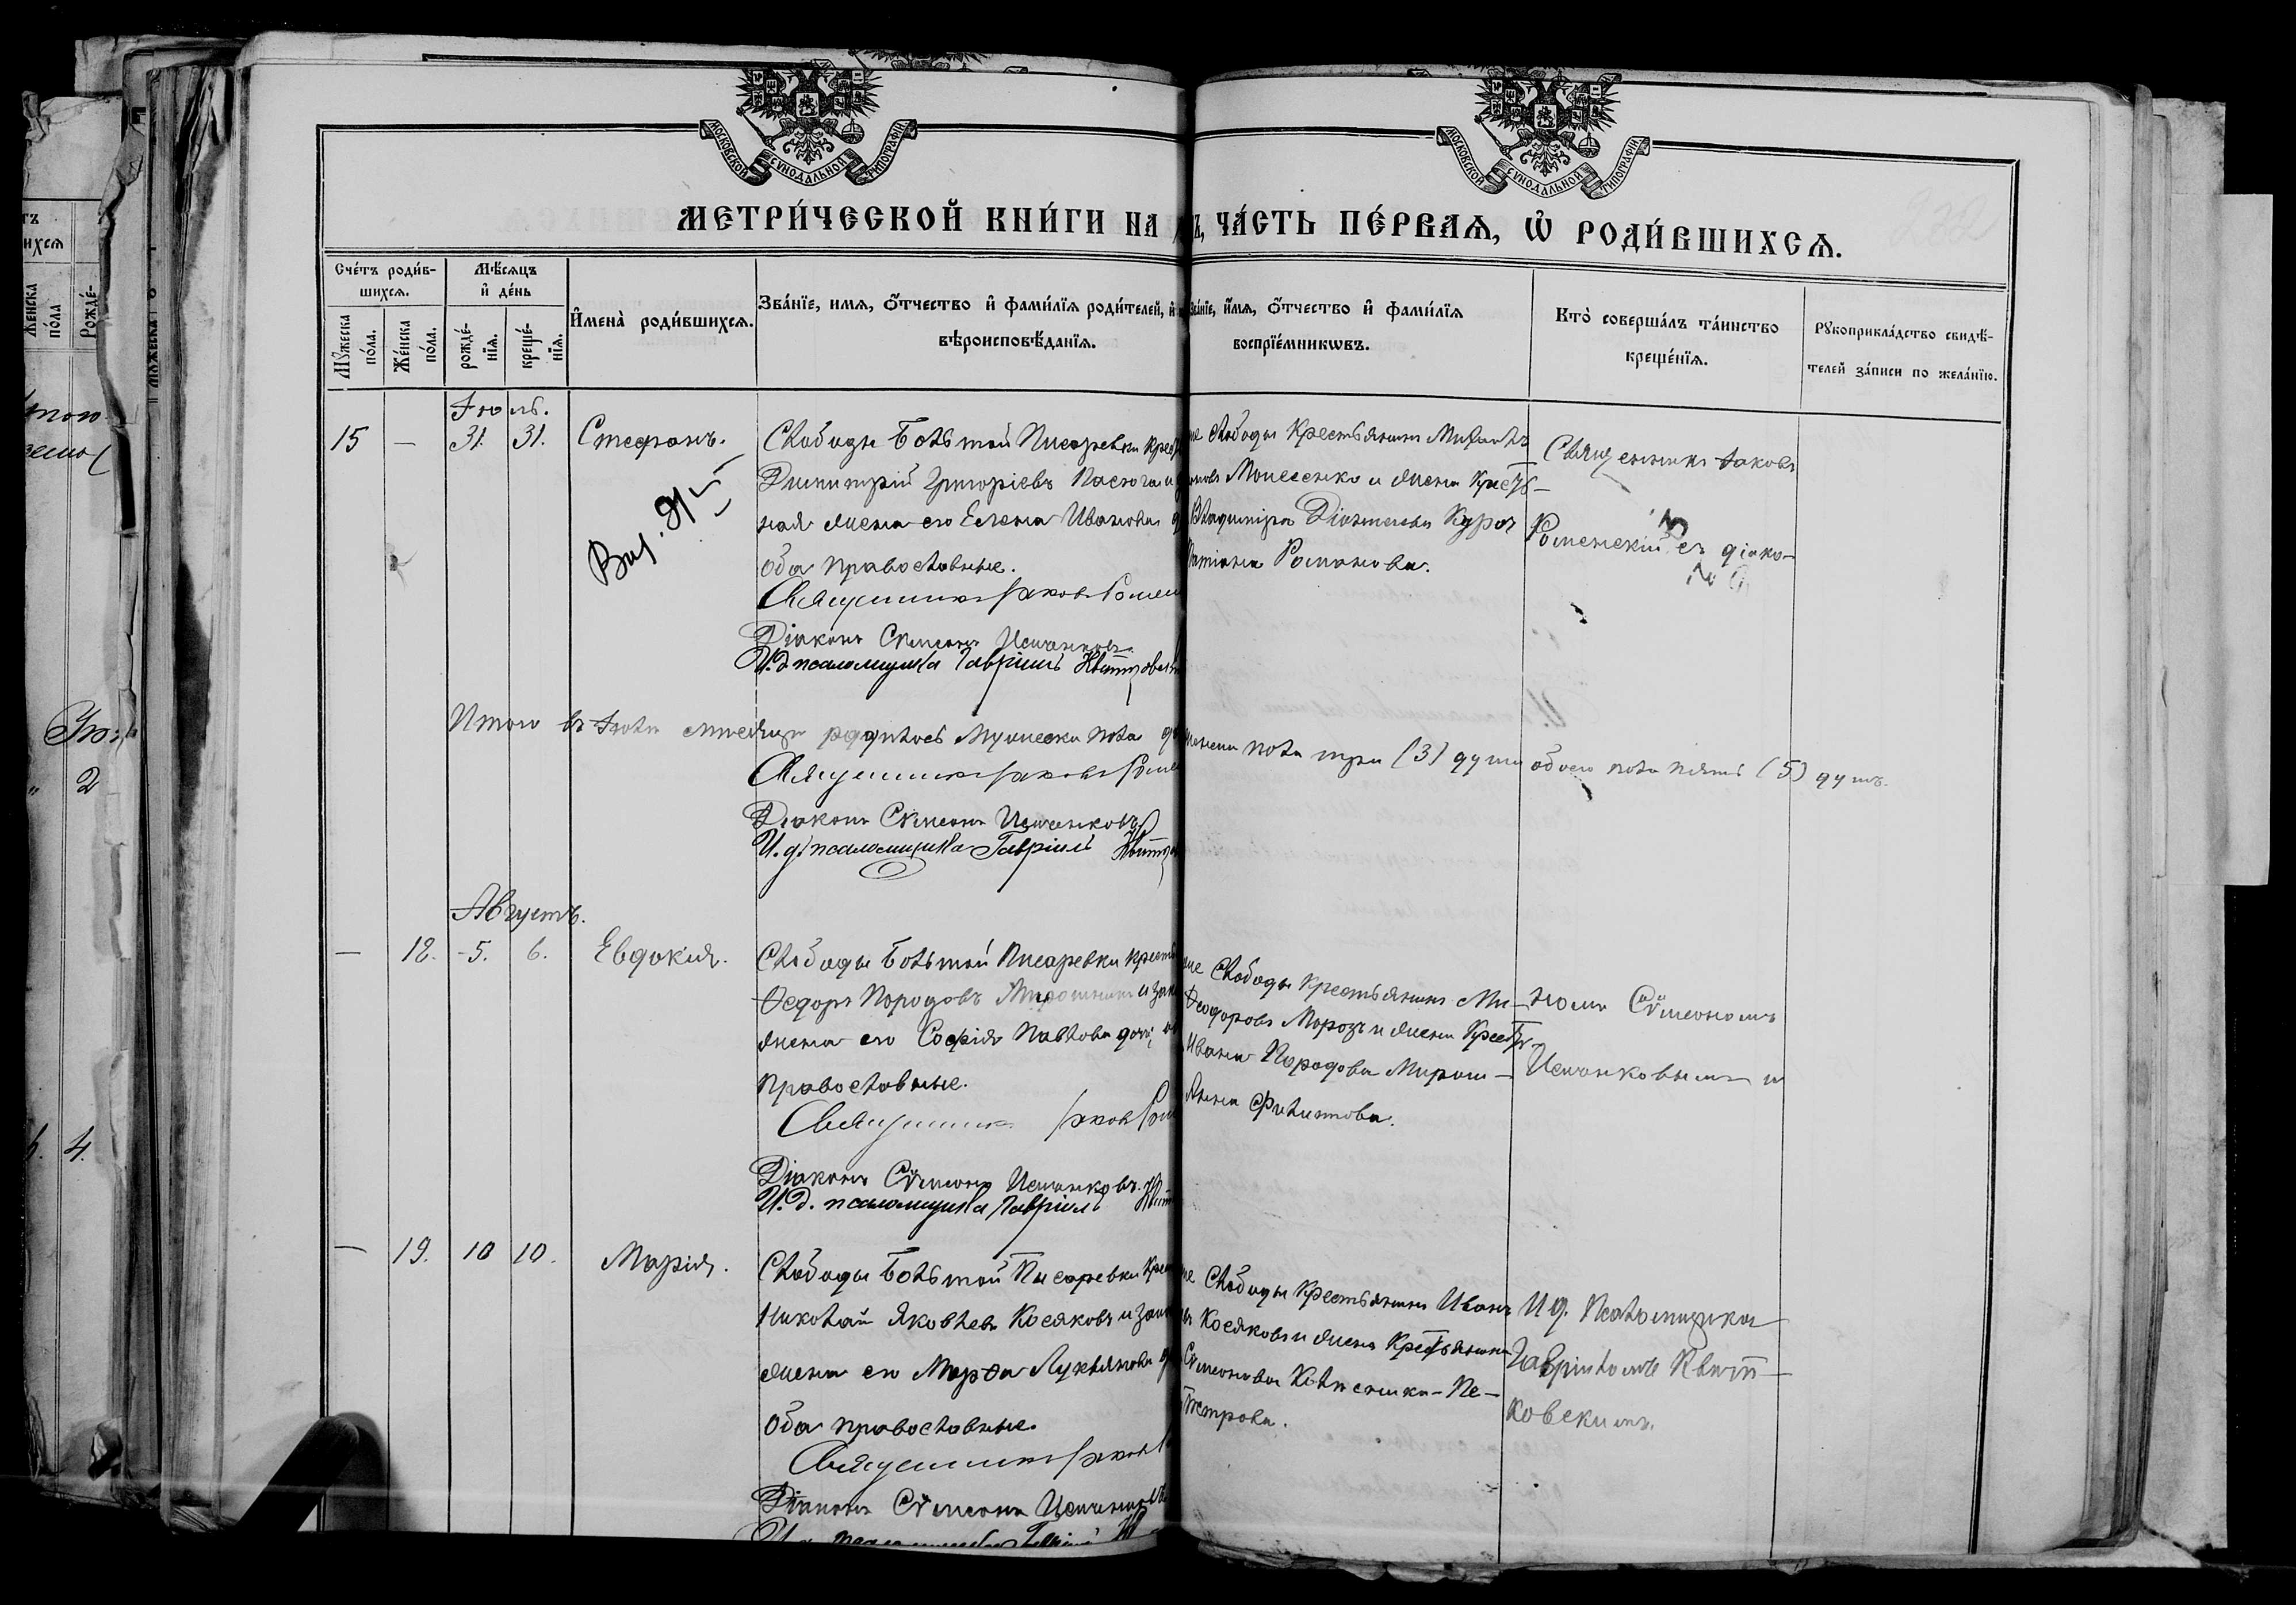 МОСКОВСКОЙ СѴНОДАЛЬНОЙ ТИПОГРАФІИ
МОСКОВСКОЙ СѴНОДАЛЬНОЙ ТИПОГРАФІИ
МЕТРИ́ЧЕСКОЙ КНИ́ГИ НА
Ъ, ЧА́СТЬ ПЕ́РВАЯ, Ѡ҆ РОДИ́ВШИХСЯ.
Сче́тъ роди́в-
шихся.
Мѣ́сяцъ
и҆ де́нь
Мꙋжеска
по́ла.
Же́нска
по́ла.
рожде́-
нїя.
креще́-
нїя.
И҆мена̀ роди́вшихся.
Зва́нїе, имя, ѻ҆́тчество и҆ фами́лїя роди́телей, и҆
вѣроисповѣ́данїя.
Зва́нїе, и҆́мя, ѻ҆́тчество и҆ фами́лїя
воспрїе́мникѡвъ.
Кто̀ соверша́лъ та́инство
креще́нїя.
Рꙋкоприкла́дство свидѣ́-
телей за́писи по жела́нїю.
Іюль.
15 — 31. 31. Стефанъ.
Слободы Большой Писаревки крест
Димитрій Григоріевъ Пасюга и
ная жена его Елена Иванова
оба православные.
Священникъ Іаковъ Ромен
Діаконъ Сѵмеонъ Исиченковъ.
И. д. псаломщика Гавріилъ Квитковск
же слободы крестьянинъ Михаилъ
Моисеенко и жена крест-
Владиміра Діонисьева Куроч
Татіана Романова.
Священникъ Іаковъ
Роменскій съ діако-
Выд.
Итого въ Іюлѣ мѣсяцѣ родилось мужеска пола
женска пола три (3) души обоего пола пять (5) душъ.
Священникъ Іаковъ Роме
Діаконъ Сѵмеонъ Исиченковъ
И. д. псаломщика Гавріилъ Квитк
Августъ.
— 18. 5. 6. Евдокія.
Слободы Большой Писаревки крест
Ѳедоръ Порфировъ Мирошник и зак
жена его Софія Павлова дочь,
православные.
Священникъ Іаковъ Ром
Діаконъ Сѵмеонъ Исиченковъ.
И. д. псаломщика Гавріилъ Квит
же Слободы крестьянинъ Ми-
Ѳеодоровъ Морозъ и жена крест-
Ивана Мирош-
Анна Филиппова.
номъ Сѵмеономъ
Исиченковымъ и
— 19. 10 10. Марія.
Слободы Большой Писаревки крес
Николай Яковлевъ Косяковъ и зак
жена его Марѳа Лукьянова
оба православные.
Священникъ Іаковъ
Діаконъ Сѵмеонъ Исиченковъ
И. д. псаломщика Гавріилъ
же Слободы крестьянинъ Иванъ
Косяковъ и жена крестьянина
Сѵмеонова
Петрова.
И. д. Псаломщика
Гавріиломъ Квит-
ковскимъ.
2
4.